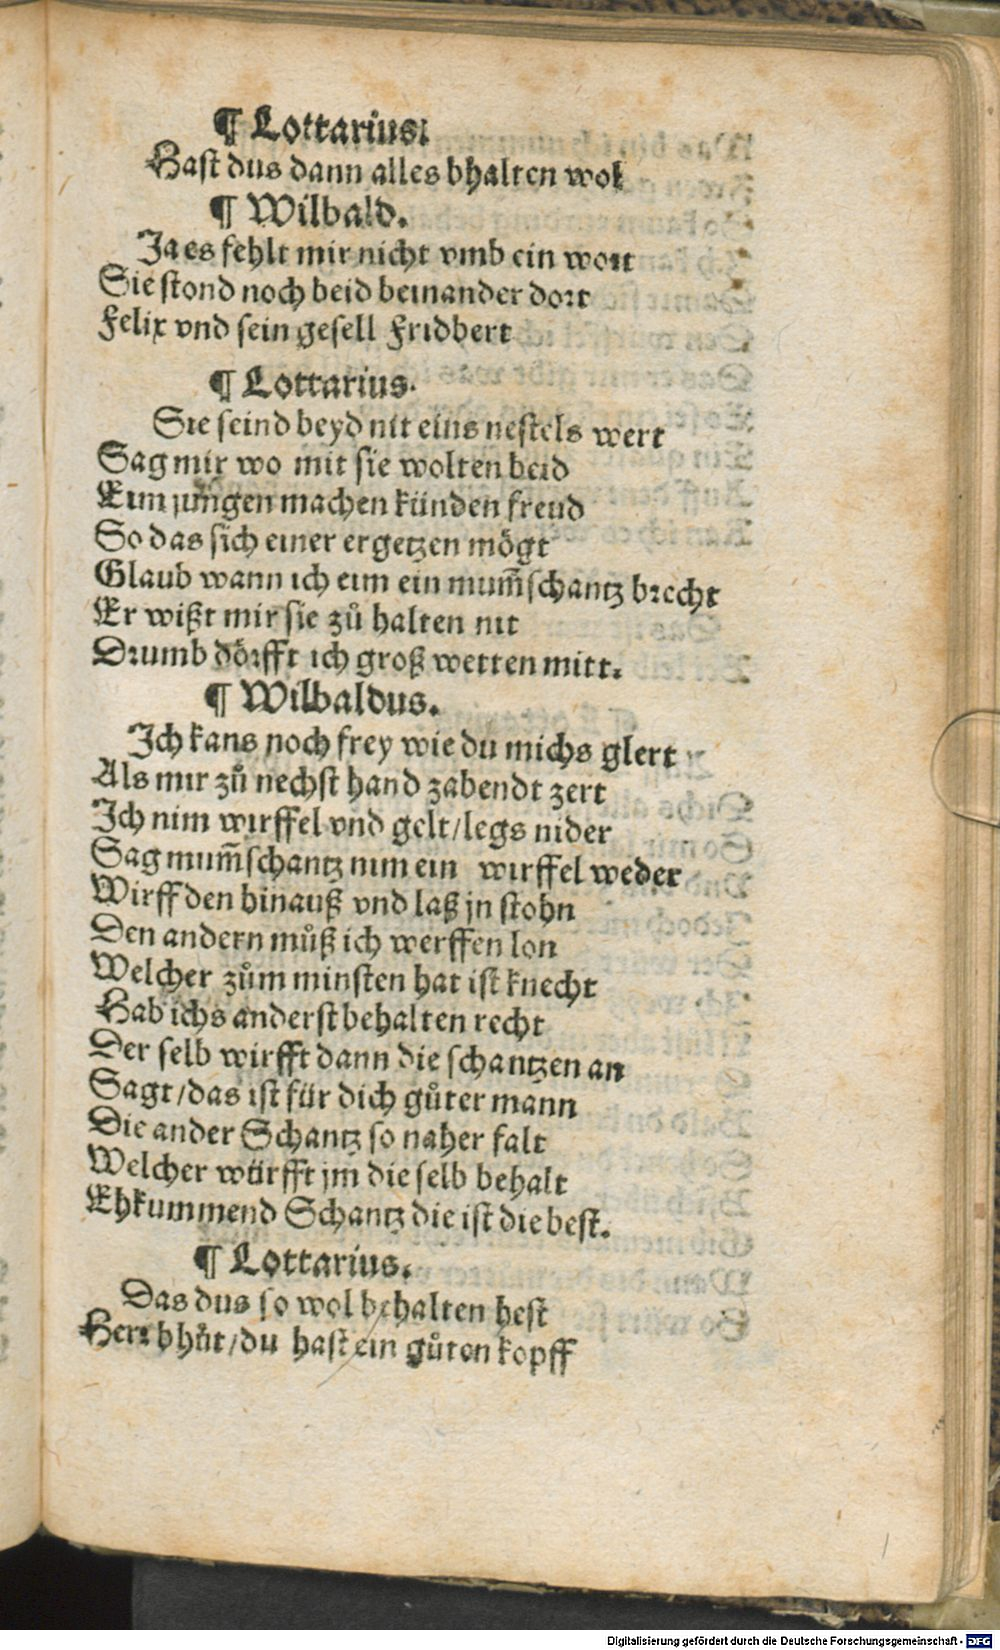 ¶ Lottariůs.
Hast dus dann alles bhalten wol
¶ Wilbald.
Ja es fehlt mir nicht vmb ein wort
Sie stond noch beid beinander dort
Felix vnd sein gesell Fridbert
¶ Lottarius.
Sie seind beyd nit eins nestels wert
Sag mir wo mit sie wolten beid
Eim jungen machen künden freud
So das sich einer ergetzen mögt
Glaub wann ich eim ein mum̃schantz brecht
Er wißt mir sie zů halten nit
Drumb dörfft ich groß wetten mitt.
¶ Wilbaldus.
Ich kans noch frey wie du michs glert
Als mir zů nechst hand zabendt zert
Ich nim wirffel vnd gelt/legs nider
Sag mum̃schantz nim ein wirffel weder
Wirff den hinauß vnd laß jn stohn
Den andern můß ich werffen lon
Welcher zům minsten hat ist knecht
Hab ichs anderst behalten recht
Der selb wirfft dann die schantzen an
Sagt/das ist für dich gůter mann
Die ander Schantz so naher falt
Welcher würfft jm die selb behalt
Ehkummend Schantz die ist die best.
¶ Lottarius.
Das dus so wol behalten hest
Herr bhůt/du hast ein gůten kopff
Digitalisierung gefördert durch die Deutsche Forschungsgemeinschaft - DFG